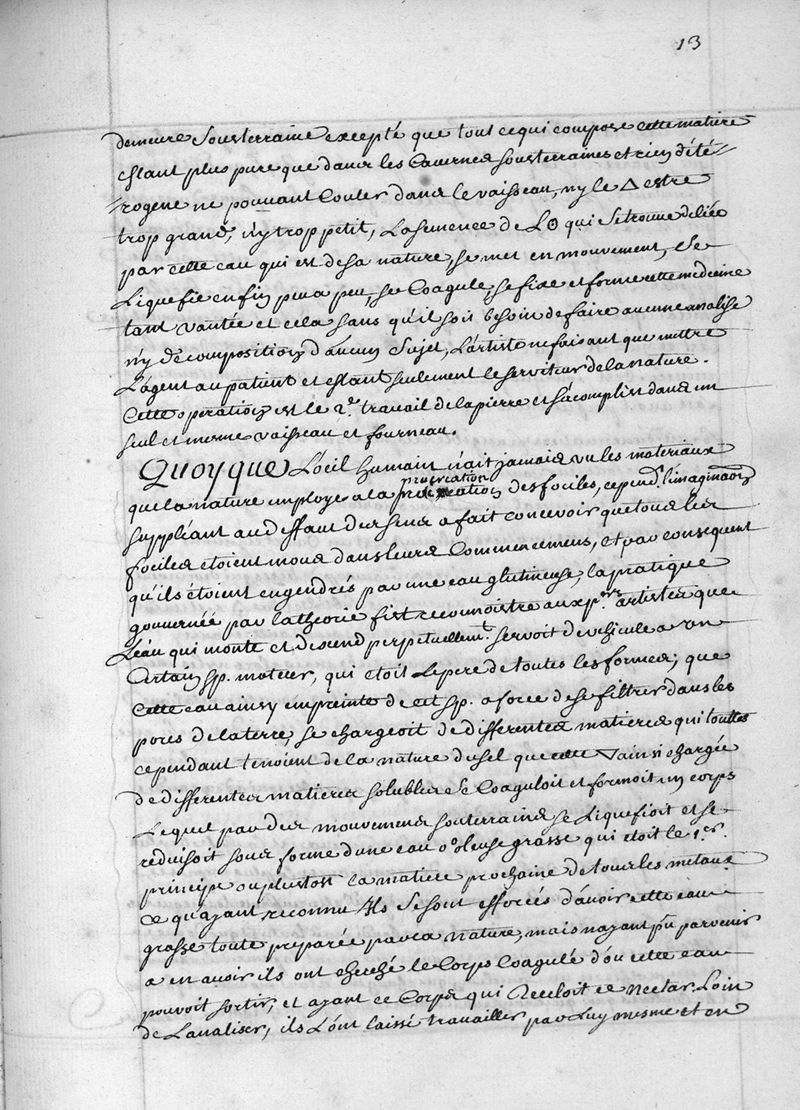 13
demeure Sousterraine excepté que tout ce qui compose cette matiere
estant plus pure que dans les Cavernes sousterraines et rien d'été=
=rogene ne pouvant Couler dans le vaisseau, n'y le △ estre
trop grand, n'y trop petit, La semence de L☉ qui se trouve deliée
par cette eau qui est de sa nature, se met en mouvement, se
Liquefie enfin peu a peu, se Coagule, se fixe et forme cette medecine
tant vantée et cela sans qu'il soit besoin de faire aucune analise
n'y decomposition d'aucun Sujet, L'artiste ne faisant que mettre
L'agent au patient et estant seulement le serviteur de la nature.
Cette operation est le 2.e travail de la pierre et s'acomplit dans un
seul et mesme vaisseau et fourneau.
Quoyque L'oeil humain n'ait jamais vu les materiaux
que la nature employe a la procreation des fociles, cepend.t l'imagination
suppléant au deffaut des sens a fait concevoir que tous les
fociles étoient mous dans leurs Commencemens, et par consequent
qu'ils étoient engendrés par une eau glutineuse, la pratique
gouvernée par la theorie fist reconnoistre aux p.ers artistes que
L'eau qui monte et descend perpetuellem.t servoit de vehicule a un
Certain sp. moteur, qui étoit Le pere de toutes les formes; que
Cette eau ainsy empreinte de cet sp. a force de se filtrer dans les
pores de la terre, se chargeoit de differentes matieres qui touttes
cependant tenoient de la nature du sel que cette ▽ ainsi chargée
de differentes matieres solubles se Coaguloit et formoit un corps
Lequel par des mouvemens souterrains se Liquefioit et se
reduisoit sous forme d'une eau oleuse grasse qui étoit le 1.er
principe ou plustost la matiere prochaine de tous les metaux
Ce qu'ayant reconnu Ils se sont efforcés d'avoir cette eau
grasse toute preparée par la nature, mais n'ayant pû parvenir
a en avoir ils ont cherché le Corps Coagulé d'ou cette eau
pouvoit sortir, et ayant ce Corps qui Receloit ce nectar Loin
de L'analiser, ils L'ont laissé travailler par Luy mesme et en